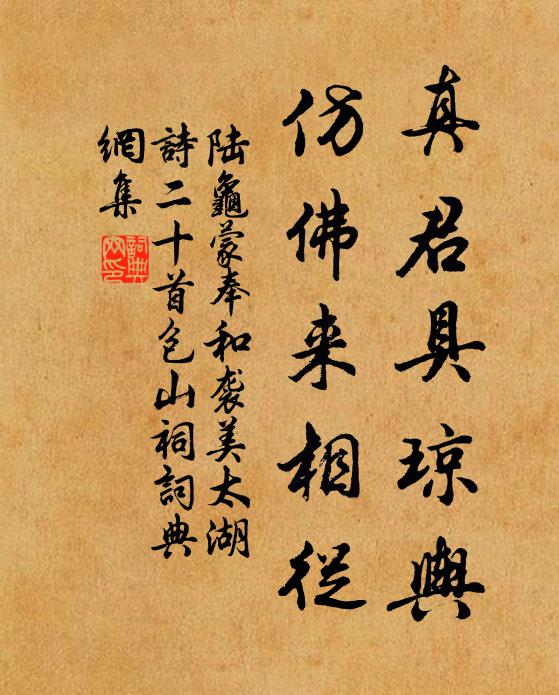 真君具琼輿
仿佛来相從
陆龜蒙奉和袭美太湖
詩二十首包山祠詞典
網集
詞典网印